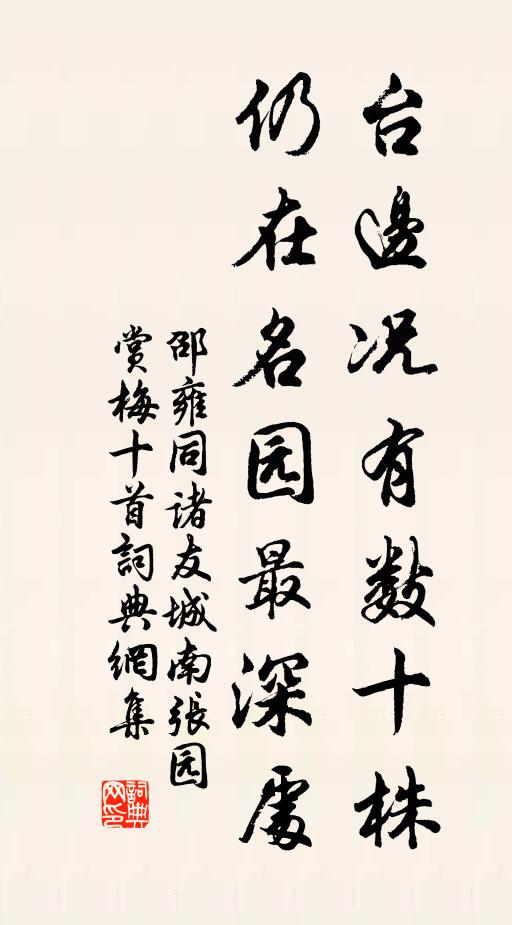 台邊况有数十株
仍在名园最深處
邵雍同诸友城南張园
赏梅十首詞典網集
詞典网印